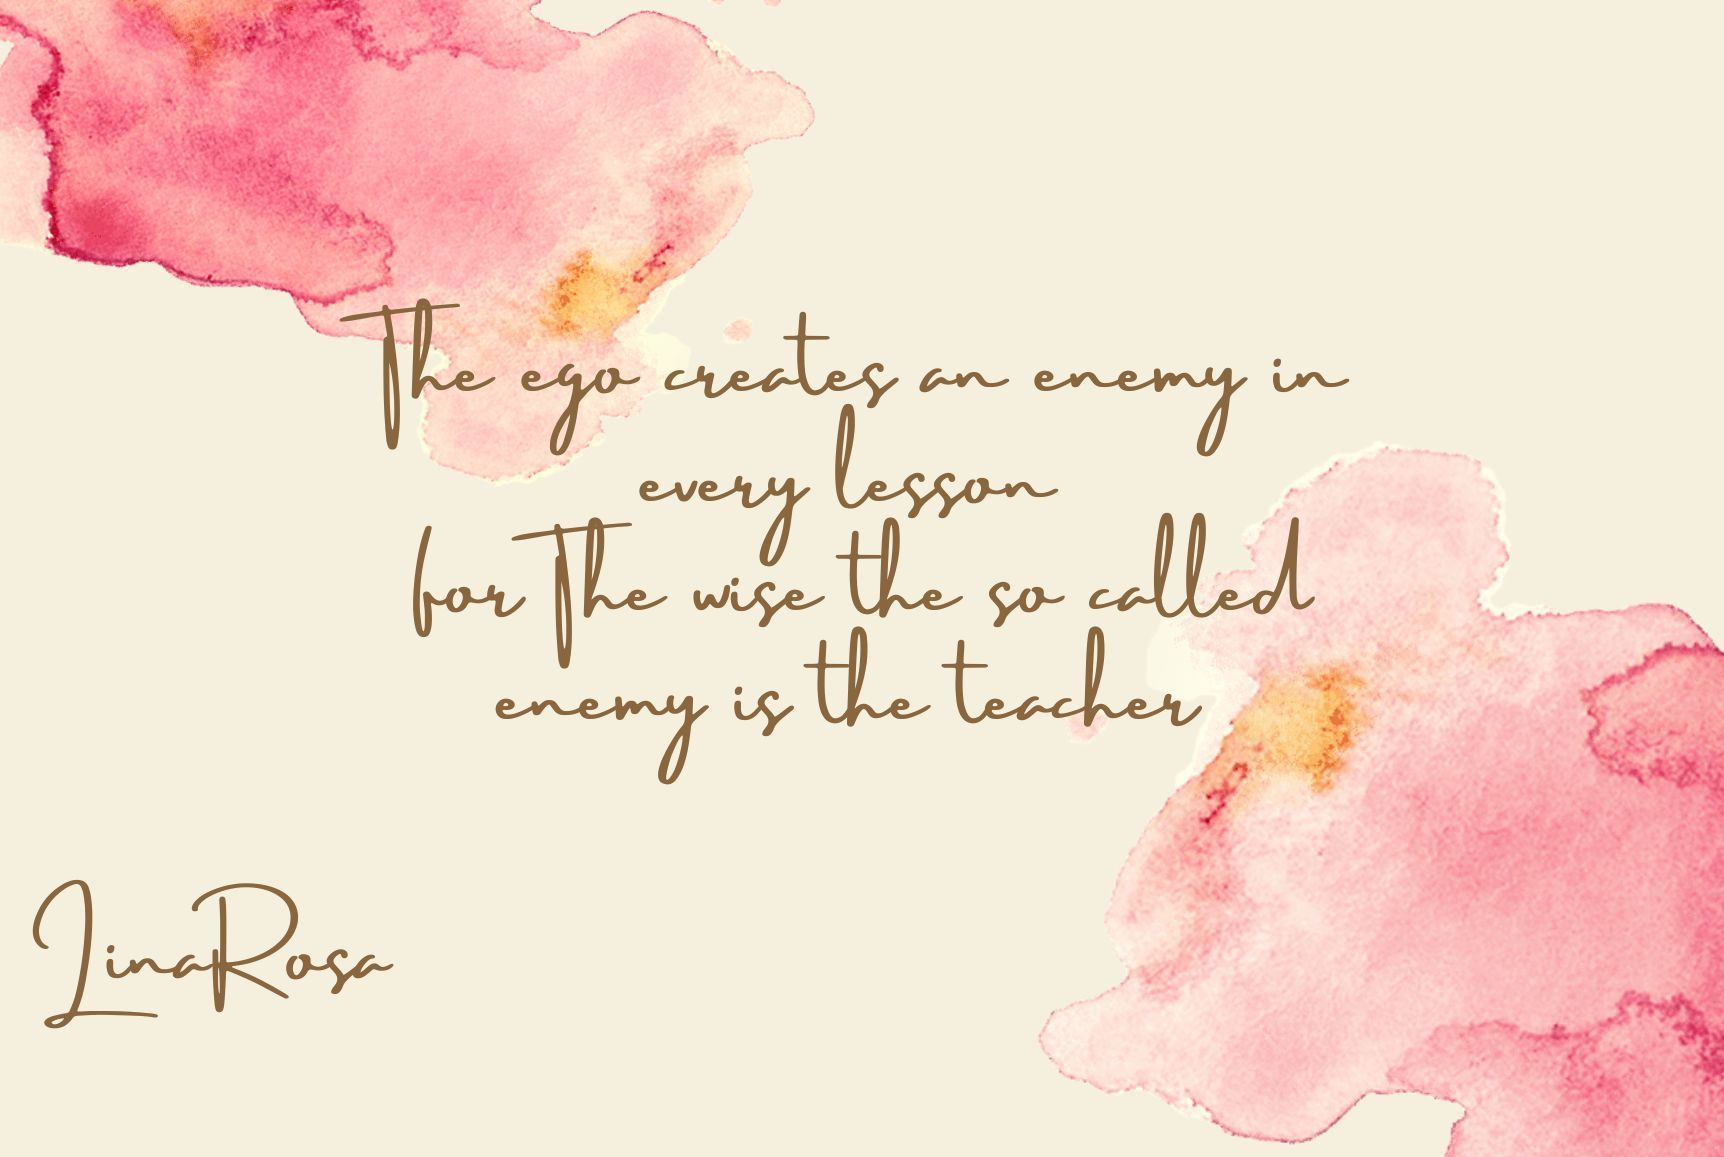 The ego creates an enemy in
every lesson
for The wise the so called
enemy is the teacher
LinaRosa